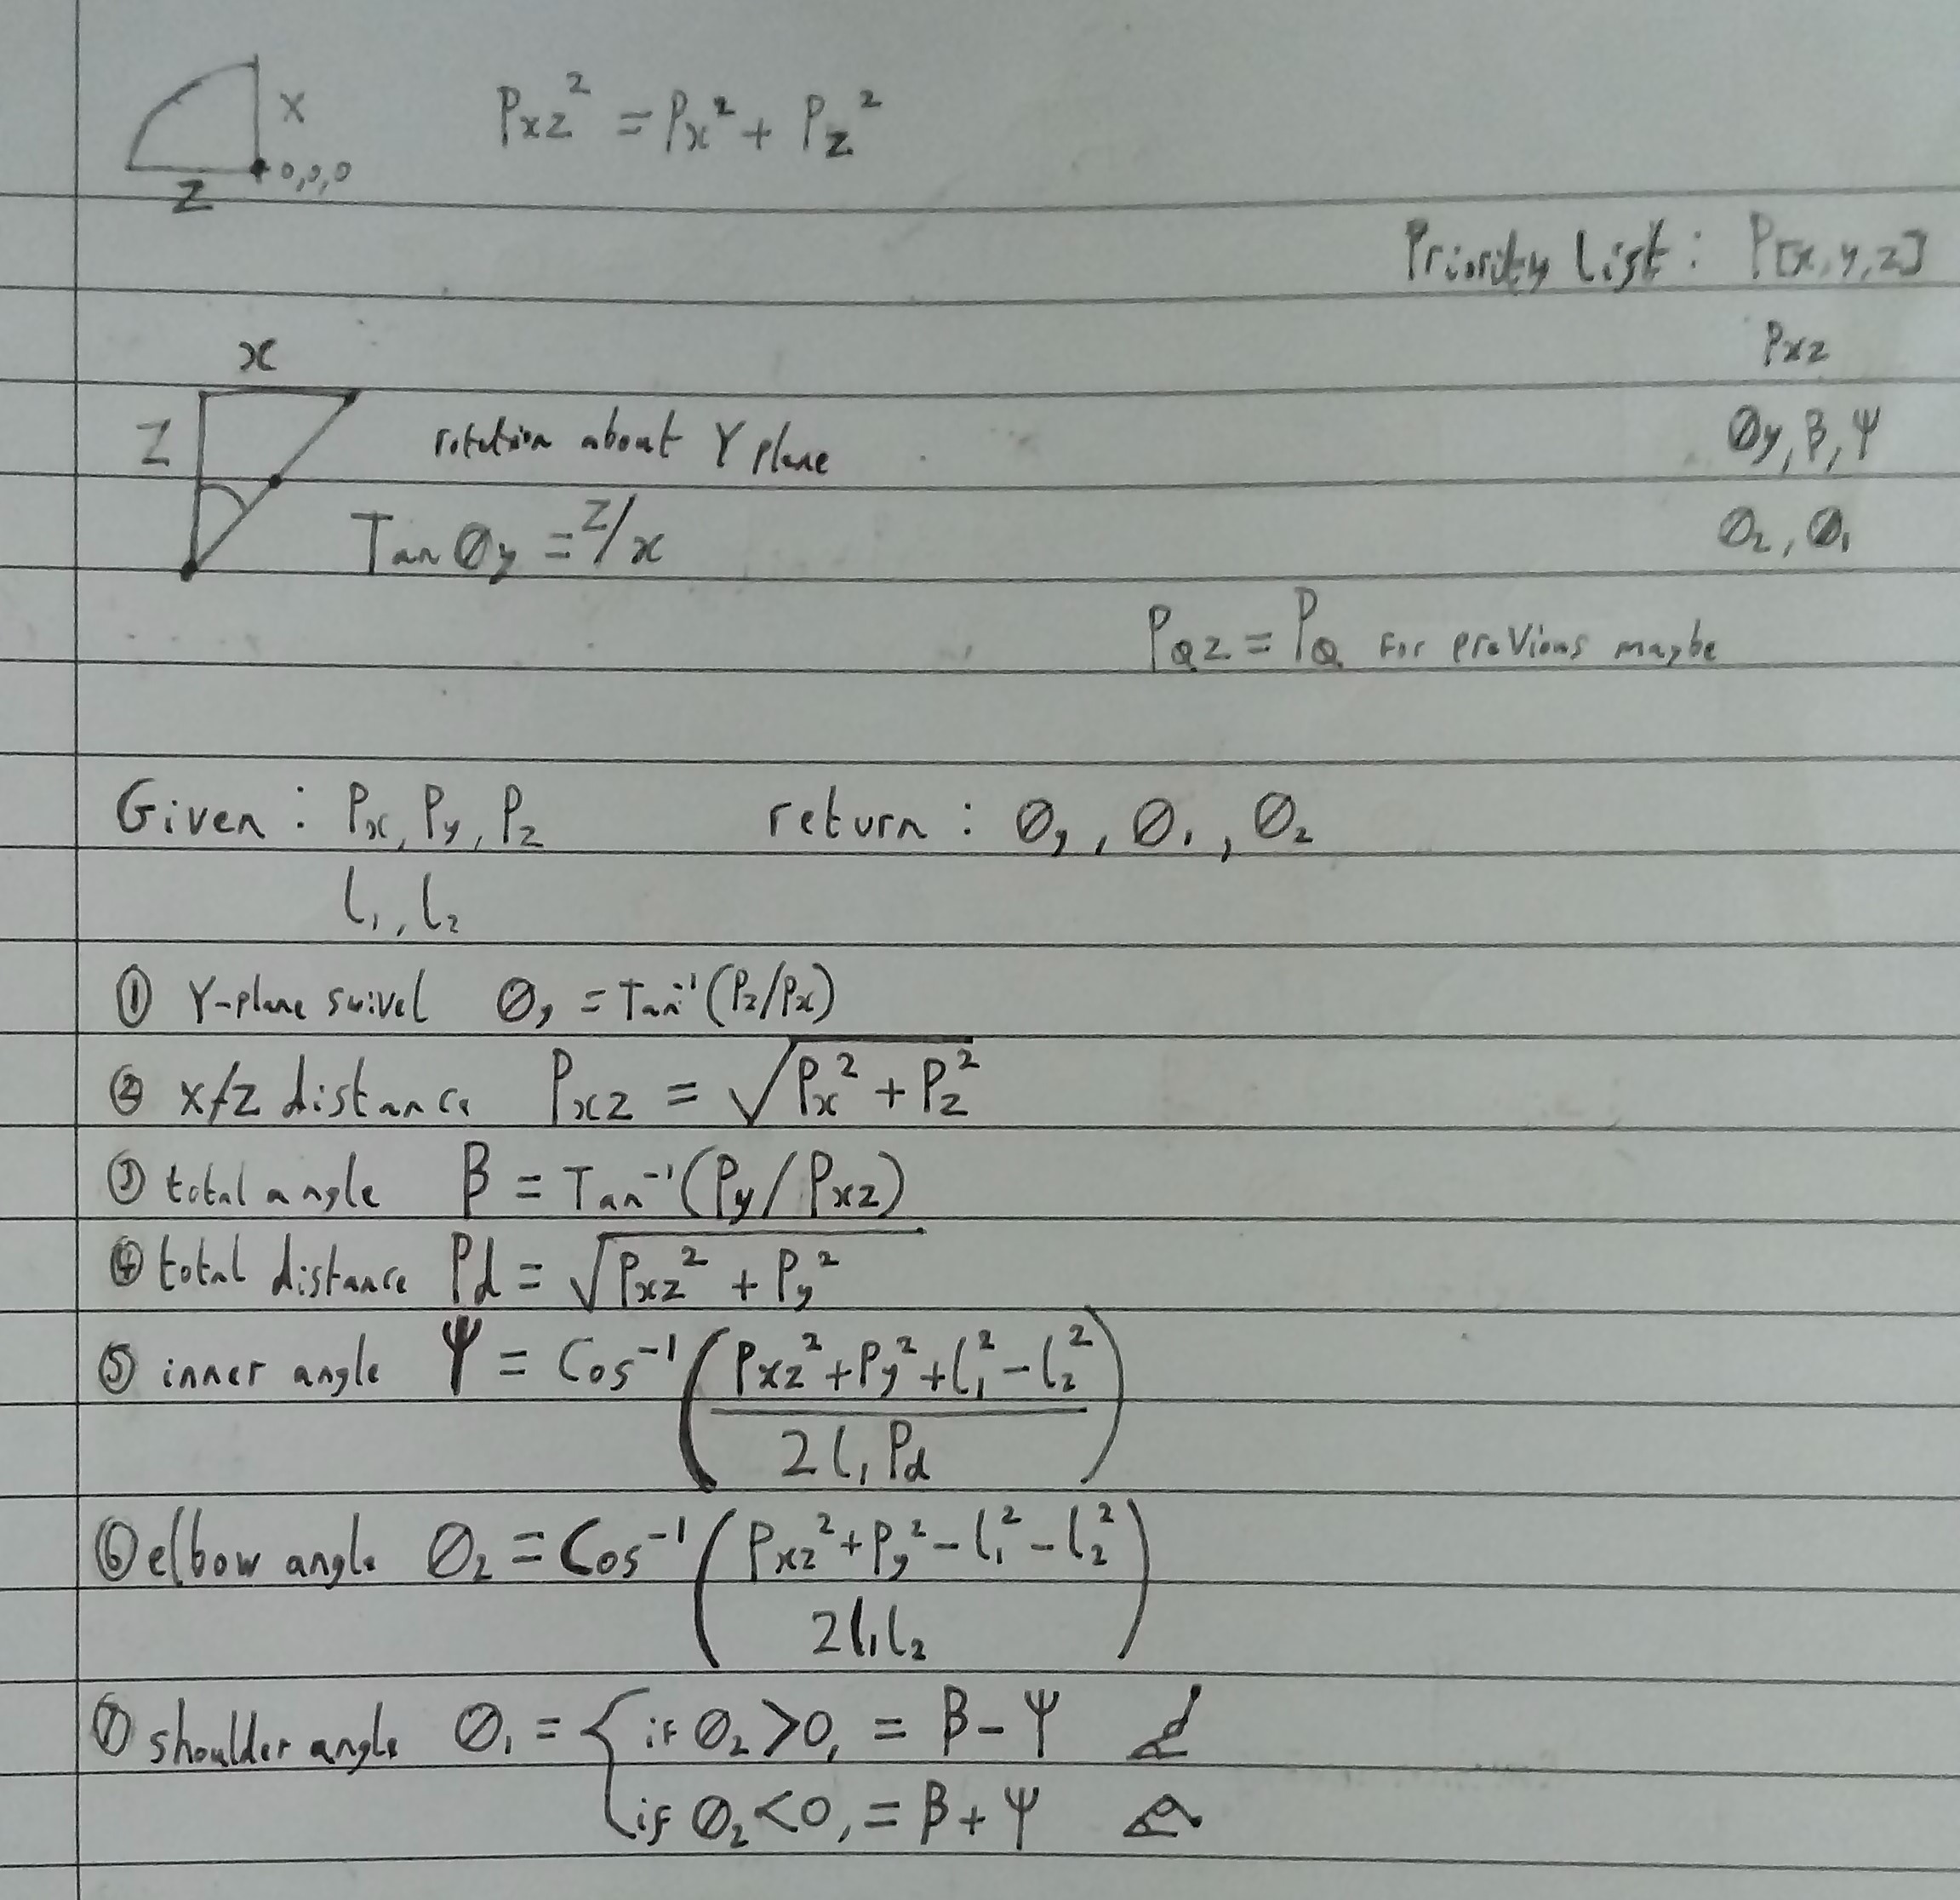 X
Pxz² = Px² + Pz²
0,0,0
Z
Priority list : P[x,y,z]
x
Pxz
Z
rotation about Y plane
Øy, β, Ψ
Tan Øy = z/x
Ø₂, Ø₁
PQz = PQ for previous maybe
Given : Px, Py, Pz return : Øy, Ø₁, Ø₂
l₁, l₂
① Y-plane swivel Øy = Tan⁻¹(Pz/Px)
② x/z distance Pxz = √(Px² + Pz²)
③ total angle β = Tan⁻¹(Py/Pxz)
④ total distance Pd = √(Pxz² + Py²)
⑤ inner angle Ψ = Cos⁻¹((Pxz² + Py² + l₁² - l₂²) / 2l₁Pd)
⑥ elbow angle Ø₂ = Cos⁻¹((Pxz² + Py² - l₁² - l₂²) / 2l₁l₂)
⑦ shoulder angle Ø₁ = { if Ø₂ > 0, = β - Ψ
if Ø₂ < 0, = β + Ψ